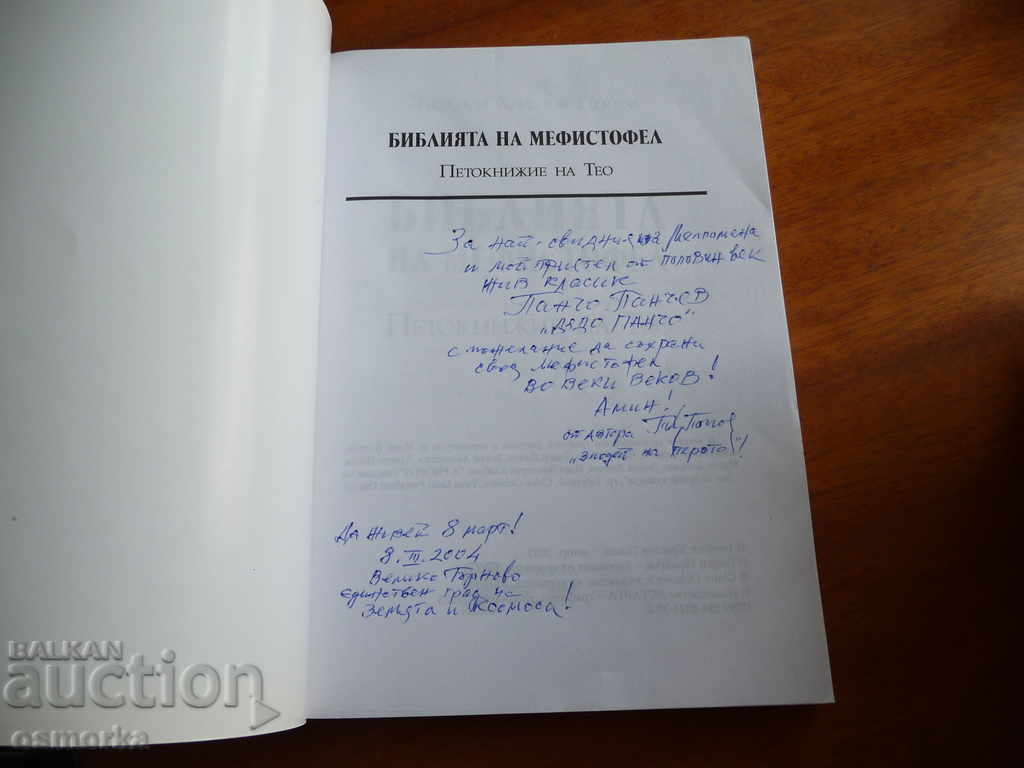 БИБЛИЯТА НА МЕФИСТОФЕЛ
ПЕТОКНИЖИЕ НА ТЕО
За най-свидния на Мелпомена
и мой приятел от половин век
жив класик
Панчо Панчев
"ДЯДО ПАНЧО"
с пожелание да съхрани
своя Мефистофел
во веки веков!
Амин!
от автора
"Злодей на перото"!
Да живей 8 март!
8.III.2004
Велико Търново
единствен град на
Земята и Космоса!
BALKAN
auction
osmorka